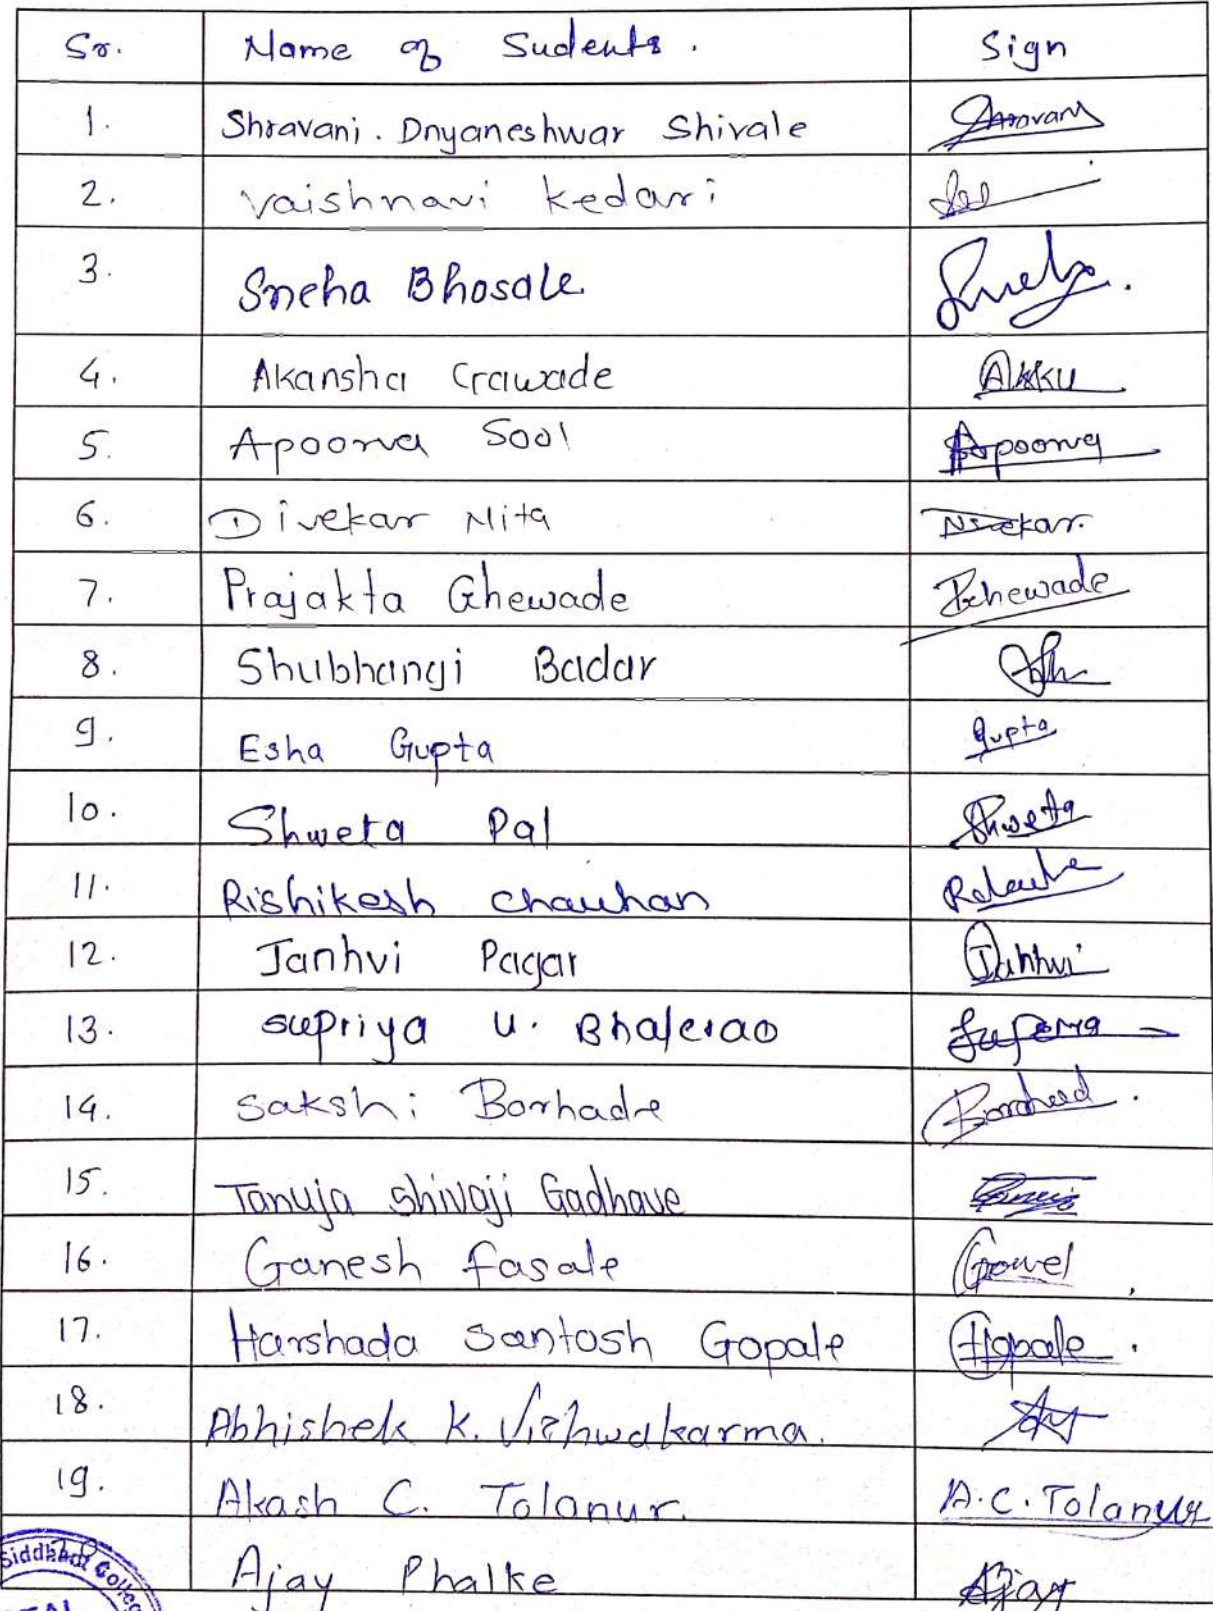 Sr. Name of Sudents. Sign
1. Shravani. Dnyaneshwar Shivale Shravani
2. Vaishnavi Kedari
3. Sneha Bhosale Sneha.
4. Akansha Grawade Akku
5. Apoorva Sool Apoorva
6. Divekar Nita Nivekar.
7. Prajakta Ghewade Pghewade
8. Shubhangi Badar
9. Esha Gupta gupta
10. Shweta Pal Shweta
11. Rishikesh chauhan
12. Janhvi Pagar Janhvi
13. supriya U. Bhalerao Supriya
14. sakshi Borhade
15. Tanuja Shivaji Gadhave
16. Ganesh fasale
17. Harshada Santosh Gopale Hgopale.
18. Abhishek K. Vishwakarma.
19. Akash C. Tolanur. A.C. Tolanur
Ajay Phalke Ajay
Siddhant College